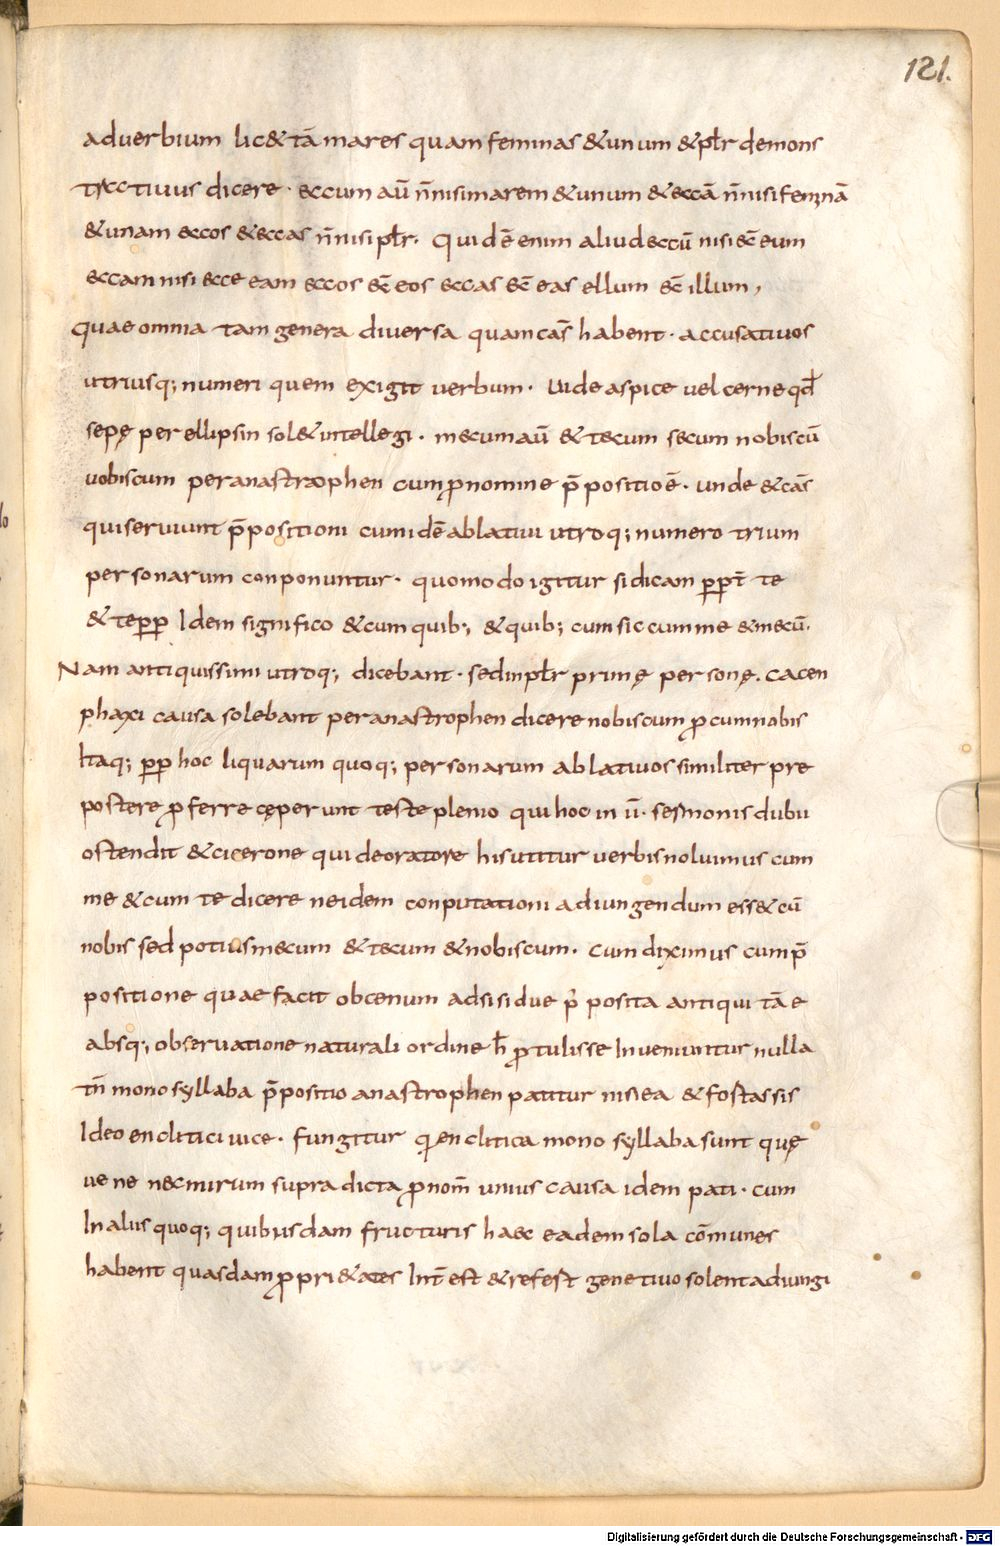 121.
aduerbium lic& tā mares quam feminas & unum & pɫr demons
trectiuus dicere · eccum aū n̄nisimarem & unum & eccā n̄nisi feminā
& unam eccos & eccas n̄nisi pɫr. Quidē enim aliud eccū nisi ecē eum
eccam nisi ecce eam eccos ecē eos eccas ecē eas ellum ecē illum,
quae omnia tam genera diuersa quam cas̄ habent · accusatiuos
utriusq; numeri quem exigit uerbum · Uide aspice uel cerne qđ
sepę per ellipsin sol& intellegi · mecum aū & tecum secum nobiscū
uobiscum per anastrophen cum ꝓnomine p̄positio ē · unde & cas̄
qui seruiunt p̄positioni cum idē ablatiui utroq; numero trium
personarum conponuntur · quomodo igitur si dicam ꝑpt̄ te
& te ꝑp Idem significo & cum quib; & quib; cum sic cum me & mecū.
Nam antiquissimi utroq; dicebant · sed in pɫr primę personę. cacen
phaxi causa solebant per anastrophen dicere nobiscum ꝓ cum nobis
Itaq; ꝑp hoc liquarum quoq; personarum ablatiuos similiter pre
postere ꝓferre cęperunt teste plenio qui hoc in ū. sermonis dubii
ostendit & cicerone qui de oratore his utitur uerbis noluimus cum
me & cum te dicere ne idem conputationi adiungendum ess& cū
nobis sed potius mecum & tecum & nobiscum. Cum diximus cum p̄
positione quae facit obcenum adsisidue p̄ posita antiqui tā e
absq; obseruatione naturali ordine h̄ ꝓtulisse Inueniuntur nulla
tn̄ monosyllaba p̄positio anastrophen patitur nisi ea & fostassis
Ideo enclitici uice · fungitur q enclitica monosyllaba sunt quę
ue ne nec mirum supra dicta ꝓnom̄ unius causa idem pati · cum
In aliis quoq; quibusdam fructuris haec eadem sola cōmunes
habent quasdam ꝓpri&ates Int̄ est & refest genetiuo solent adiungi
Digitalisierung gefördert durch die Deutsche Forschungsgemeinschaft - DFG